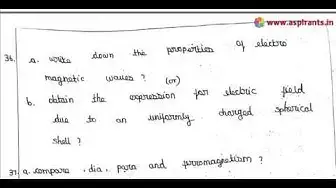 www.aspirants.in
36. a. write down the properties of electro
magnetic waves ? (or)
b. obtain the expression for electric field
due to an uniformly charged spherical
shell ?
37. a. compare , dia , para and ferromagnetism ?